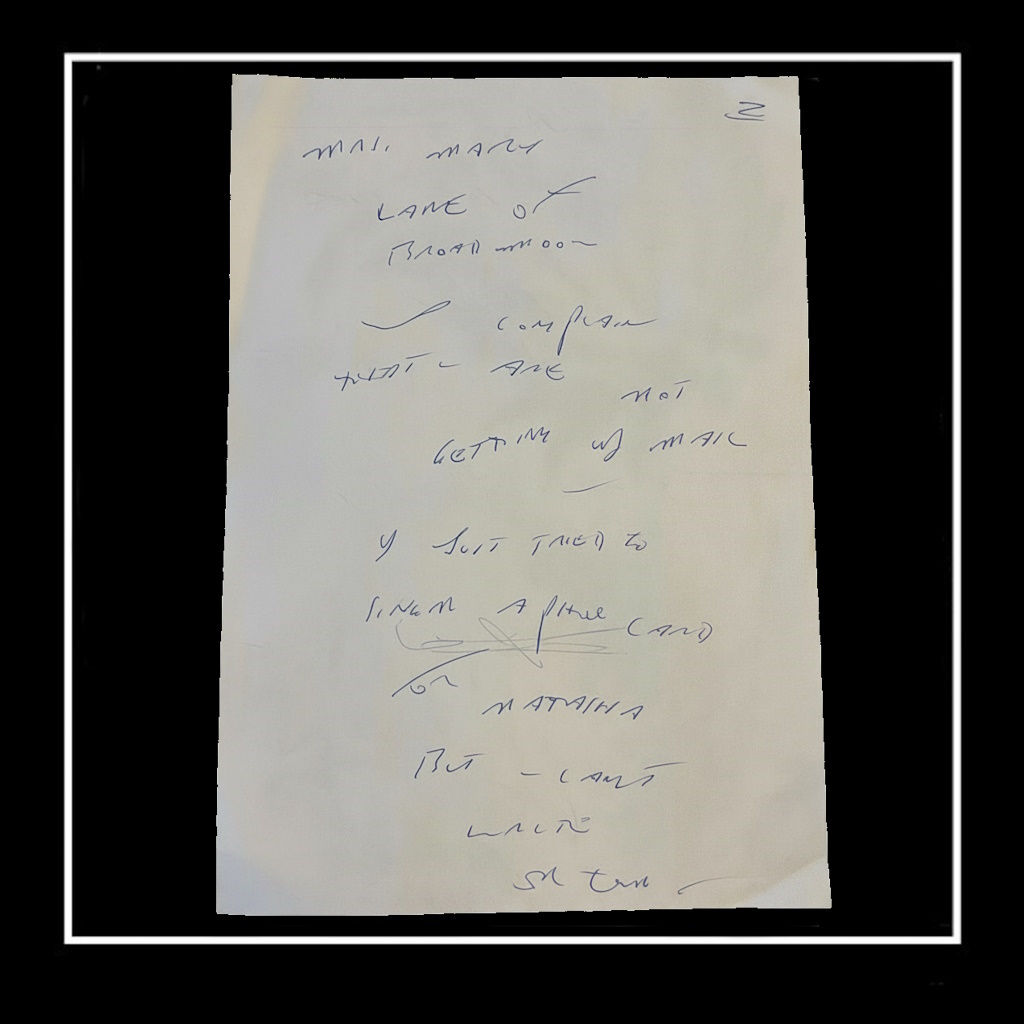 2
MRS. MARY
LANE OF
BROADMOOR
COMPLAIN
THAT ARE
NOT
GETTING MAIL
I JUST TRIED TO
A PHONE CARD
FOR
NATASHA
BUT - CANT
WRITE